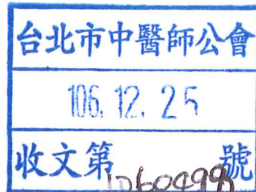 台北市中醫師公會
106. 12. 25
收文第1060499號